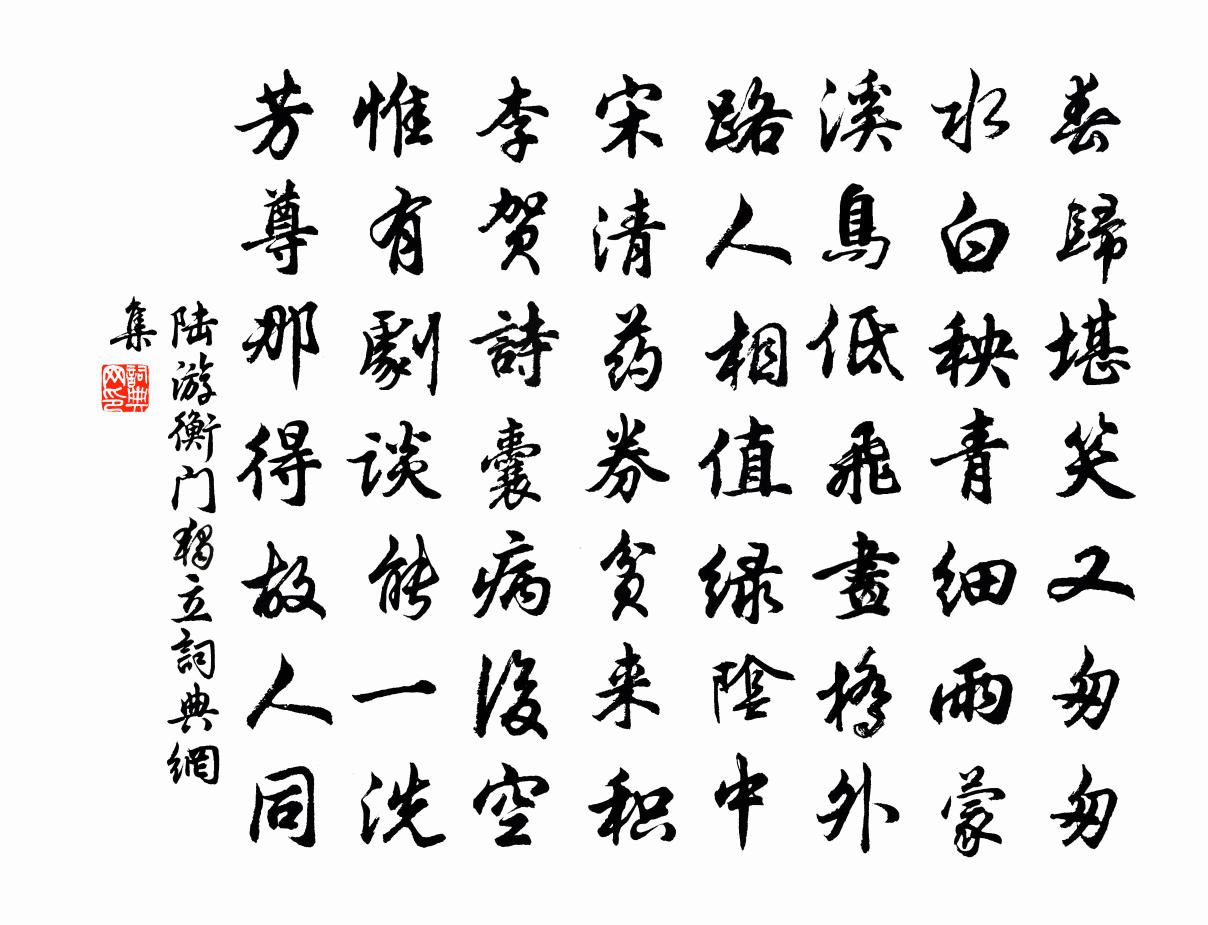 春歸堪笑又匆匆
水白秧青细雨蒙
溪鳥低飛畫橋外
路人相值緑陰中
宋清药券貧来积
李贺詩囊病後空
惟有劇谈能一洗
芳尊那得故人同
陆游衡门独立詞典網
集
詞典网印